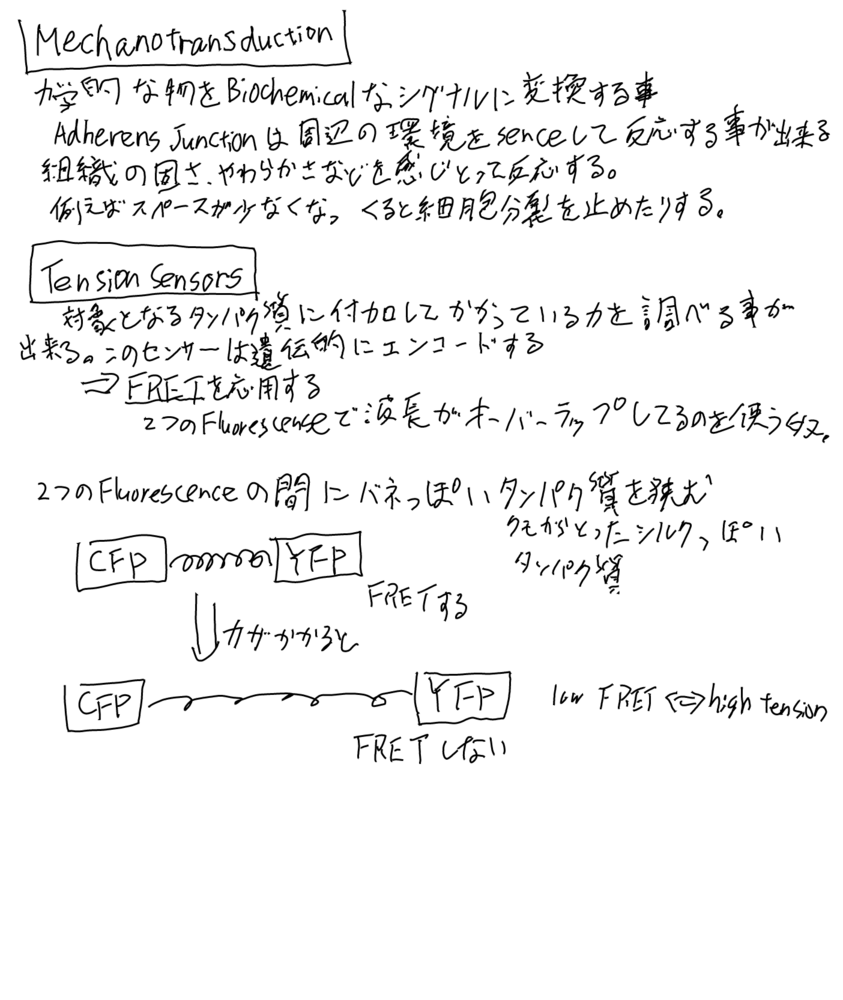 Mechanotransduction
力学的な物をBiochemicalなシグナルに変換する事
Adherens Junctionは周辺の環境をsenceして反応する事が出来る
組織の固さ、やわらかさなどを感じとって反応する。
例えばスペースが少なくなっくると細胞分裂を止めたりする。
Tension Sensors
対象となるタンパク質に付加してかかっている力を調べる事が
出来る。このセンサーは遺伝的にエンコードする
⇒ FRETを応用する
2つのFluorescenceで波長がオーバーラップしてるのを使う
2つのFluorescenceの間にバネっぽいタンパク質を挟む
クモからとったシルクっぽい
タンパク質
CFP YFP
FRETする
力がかかると
CFP YFP
low FRET ⇔ high tension
FRETしない